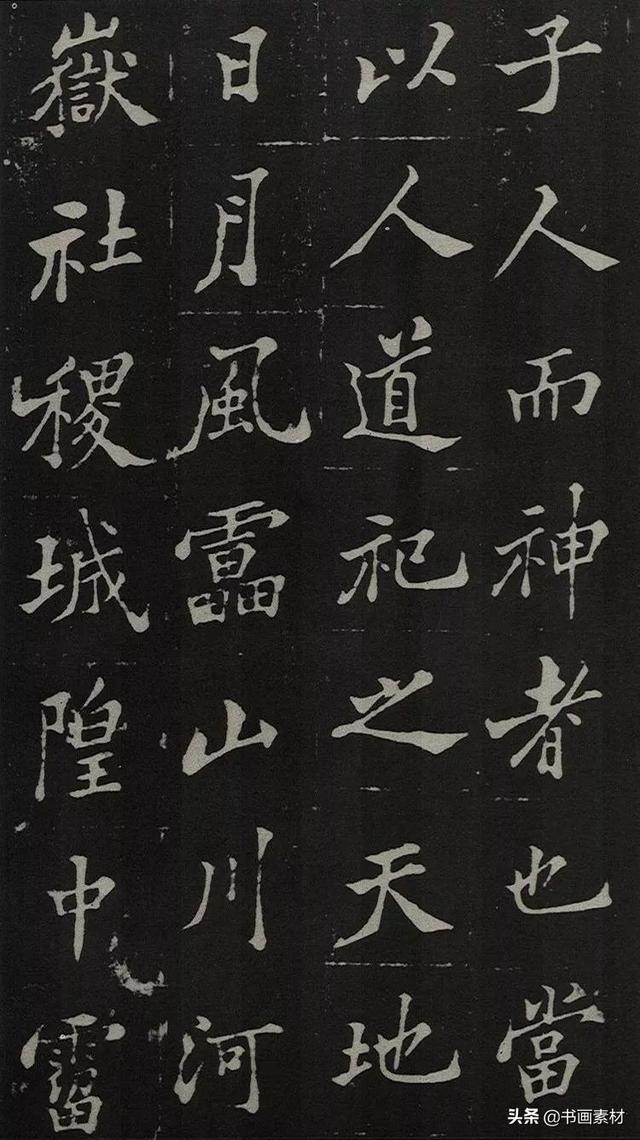 子人而神者也當
以人道祀之天地
日月風靁山川河
嶽社稷城隍中霤
头条 @书画素材